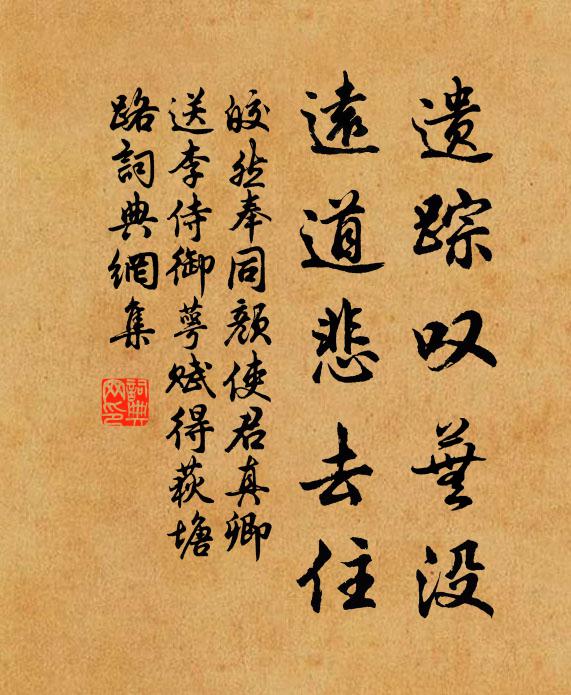 遗踪叹芜没
遠道悲去住
皎然奉同顔使君真卿
送李侍御萼赋得荻塘
路詞典網集
詞典
网印